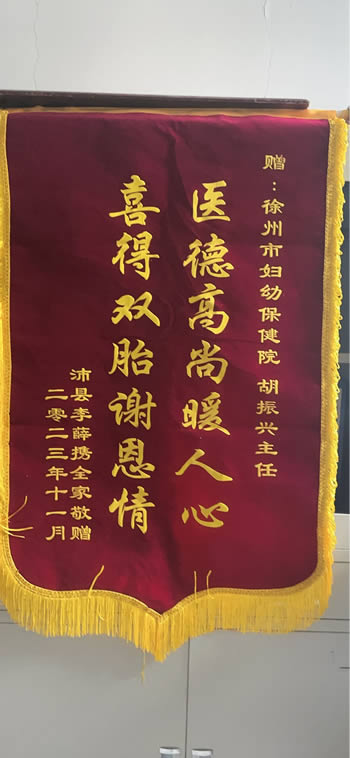 赠：徐州市妇幼保健院 胡振兴主任
医德高尚暖人心
喜得双胎谢恩情
沛县李薛携全家敬赠
二零二三年十一月